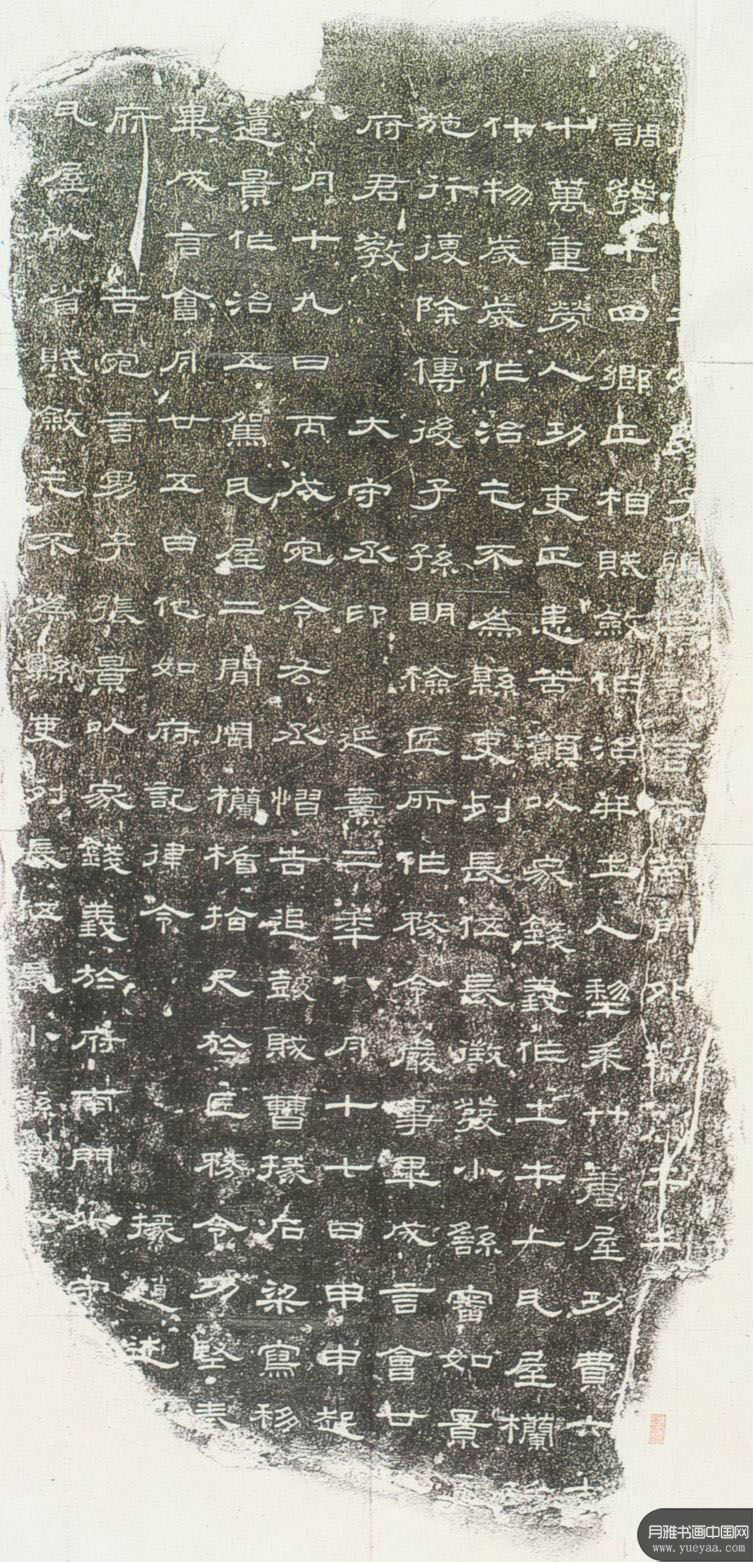 子張景記言府南門外勸土牛
調發十四鄉正相賦斂作治并土人犂耒艸蓎屋功費六十
十萬重勞人功吏正患苦願以家錢義作土牛上瓦屋欄
什物歲歲作治乞不為縣吏列長伍長徵發小繇審如景
施行復除傳後子孫明檢匠所作務令嚴事畢成言會廿
府君教 大守丞印 延熹二年八月十七日甲申起
八月十九日丙戌宛令右丞慴告追鼓賊曹掾石梁寫移
遣景作治五駕瓦屋二間周欄楯拾尺於匠務令功堅奉
畢成言會月廿五日他如府記律令 掾趙述
府告宛言男子張景以家錢義於府南門外守
瓦屋以省賦斂乞不為縣吏列長伍長小繇
月雅书画中国网
www.yueyaa.com